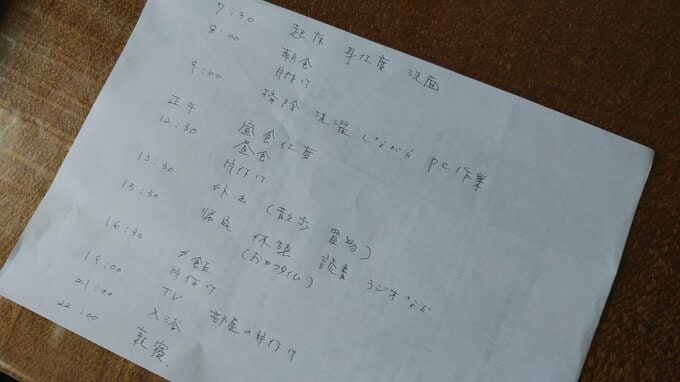 7:30 起床 身仕度 洗面
8:00 朝食
片付け
9:00 掃除 洗濯 しながら pc作業
正午 昼食仕度
12:30 昼食
片付け
13:30 外出 (散歩 買物)
15:30 帰宅 休憩 読書 ラジオなど
16:30 (おやつタイム)
夕飯
片付け
19:00 TV 部屋の片付け
21:00 入浴
22:00 就寝